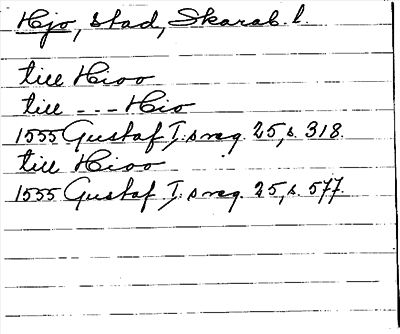 Hjo, stad, Skarab. l.
till Hioo
till --- Hio
1555 Gustaf I:s reg. 25, s. 318.
till Hioo
1555 Gustaf I:s reg. 25, s. 577.